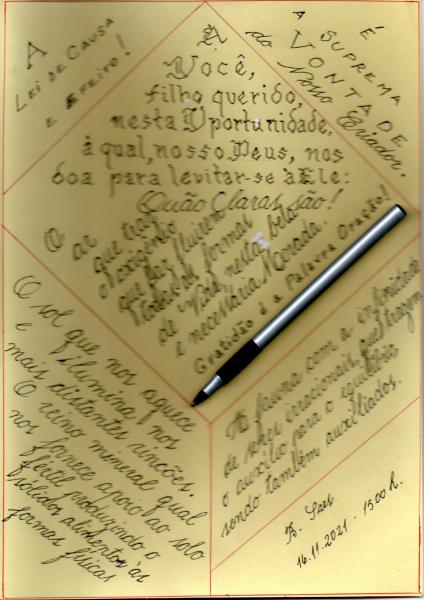 A
LEI DE CAUSA
E EFEITO!
É
A SUPREMA
VONTADE
do Nosso Criador.
A
Você,
filho querido,
nesta Oportunidade,
à qual, nosso Deus, nos
doa para levitar-se à Ele:
Quão Claras são!
O ar que traz
o oxigênio
que faz fluirem
todas as formas
de Vida, nesta bela
e necessária Morada.
Gratidão é a Palavra Oração!
O sol que nos aquece
e ilumina nos
mais distantes rincões.
O reino mineral qual
nos fornece apoio ao solo
fértil produzindo o
alimentos às
formas físicas
A fauna com a infinidade
de seres irracionais, que trazem
o auxílio para o equilíbrio
sendo também auxiliados.
16.11.2021 - 15:00 h.